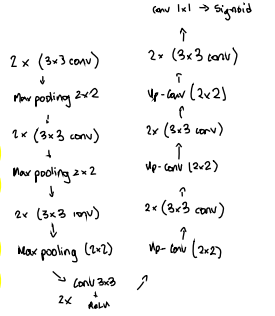 2 x (3x3 conv)
↓
Max pooling 2x2
↓
2 x (3x3 conv)
↓
Max pooling 2x2
↓
2x (3x3 conv)
↓
Max pooling (2x2)
↘
2x conv 3x3
+
ReLU
↗
Up-conv (2x2)
↑
2x (3x3 conv)
↑
Up-conv (2x2)
↑
2x (3x3 conv)
↑
Up-conv (2x2)
↑
2x (3x3 conv)
↑
conv 1x1 → Sigmoid